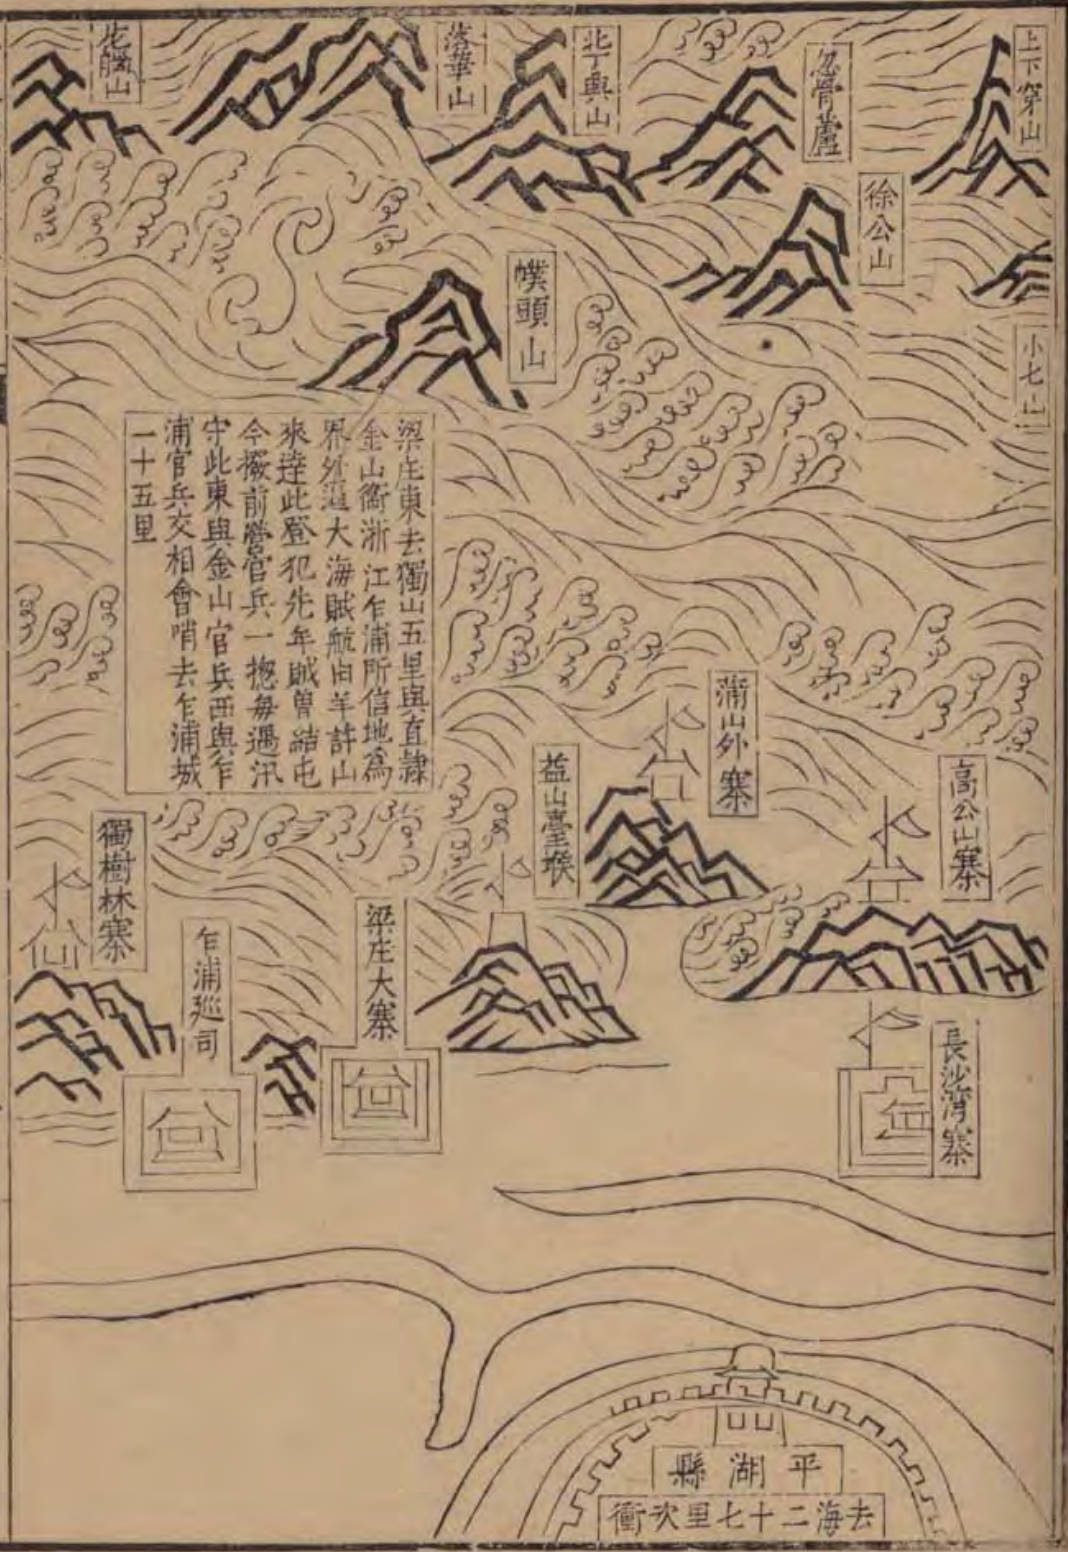 上下穿山
忽膂蘆
北丁與山
落華山
徐公山
小七山
幞頭山
梁庄東去獨山五里與直隸
金山衞浙江乍浦所信地爲
界外逼大海賊航由羊許山
來逹此登犯先年賊曾結屯
今撥前營官兵一摠每遇汛
守此東與金山官兵西與乍
浦官兵交相會哨去乍浦城
一十五里
蒲山外寨
高公山寨
益山臺堠
獨樹林寨
梁庄大寨
乍浦廵司
長沙灣寨
平湖縣
去海二十七里次衝